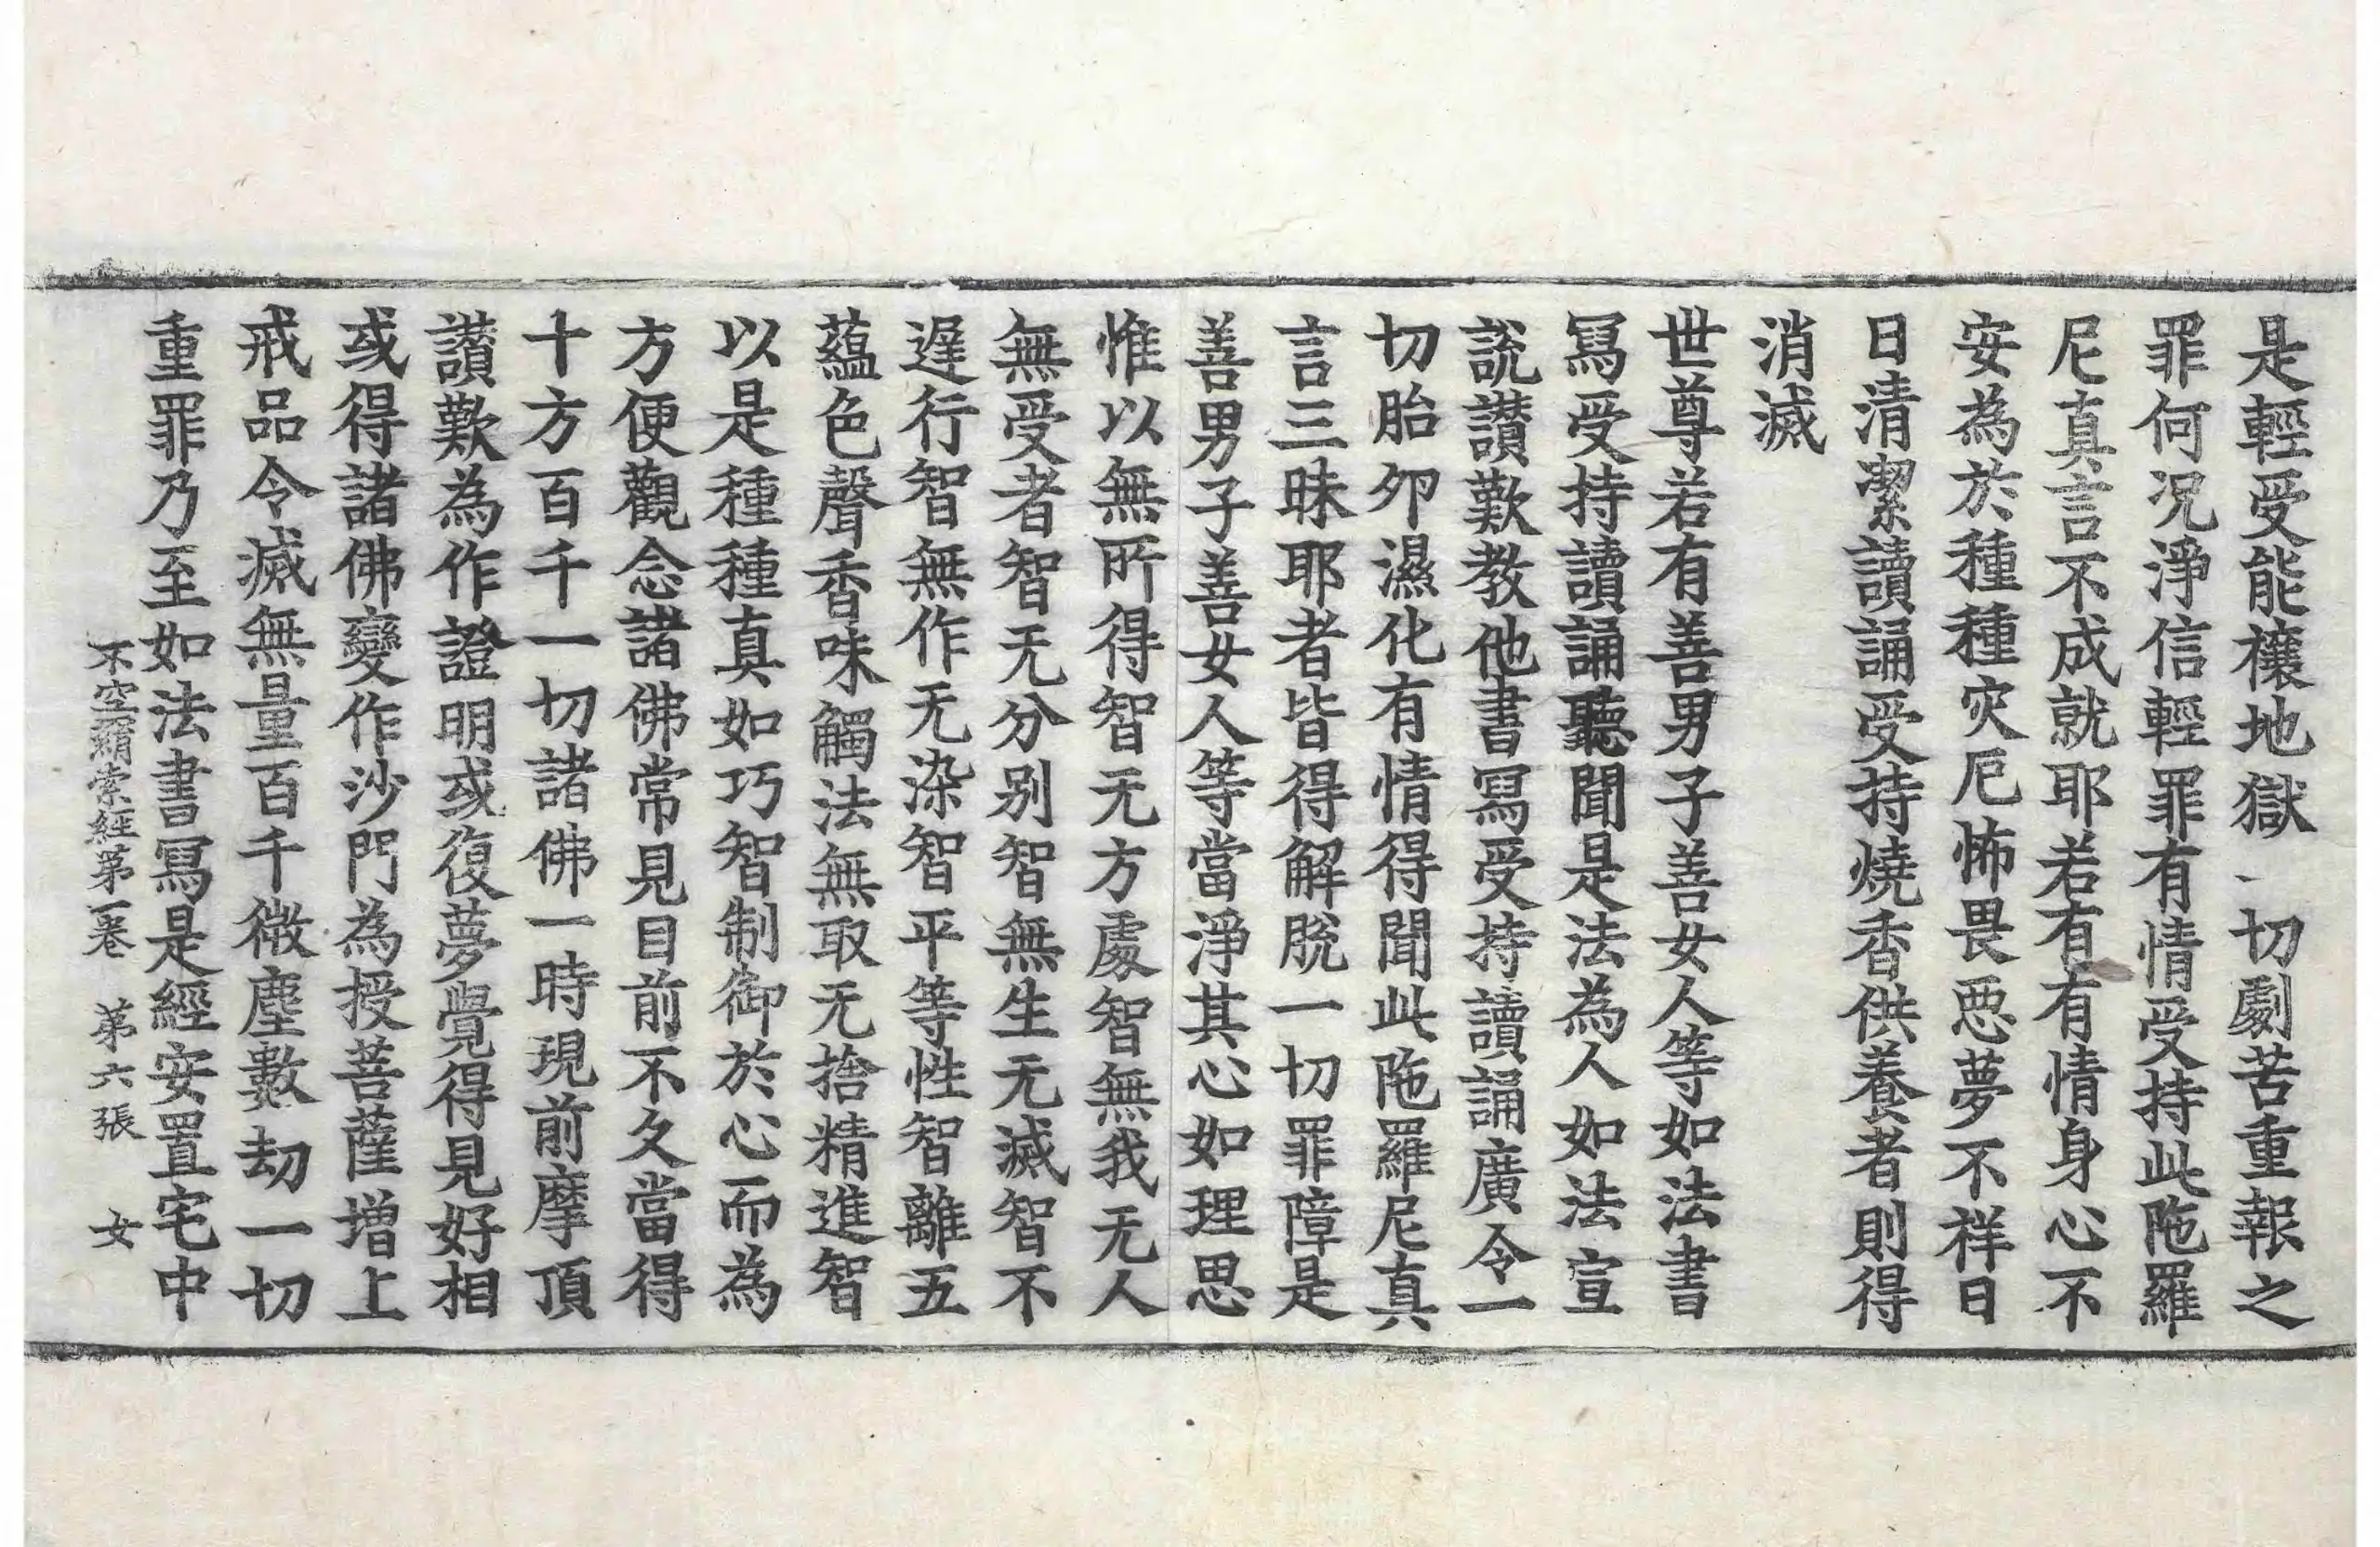 是輕受能禳地獄一切劇苦重報之
罪何況淨信輕罪有情受持此陁羅
尼真言不成就耶若有有情身心不
安為於種種灾厄怖畏惡夢不祥日
日清潔讀誦受持燒香供養者則得
消滅
世尊若有善男子善女人等如法書
寫受持讀誦聽聞是法為人如法宣
說讚歎教他書寫受持讀誦廣令一
切胎卵濕化有情得聞此陁羅尼真
言三昧耶者皆得解脫一切罪障是
善男子善女人等當淨其心如理思
惟以無所得智无方處智無我无人
無受者智无分别智無生无滅智不
遲行智無作无染智平等性智離五
蘊色聲香味觸法無取无捨精進智
以是種種真如巧智制御於心而為
方便觀念諸佛常見目前不久當得
十方百千一切諸佛一時現前摩頂
讚歎為作證明或復夢覺得見好相
或得諸佛變作沙門為授菩薩增上
戒品令滅無量百千微塵數劫一切
重罪乃至如法書寫是經安置宅中
不空羂索經第一卷　第六張　女